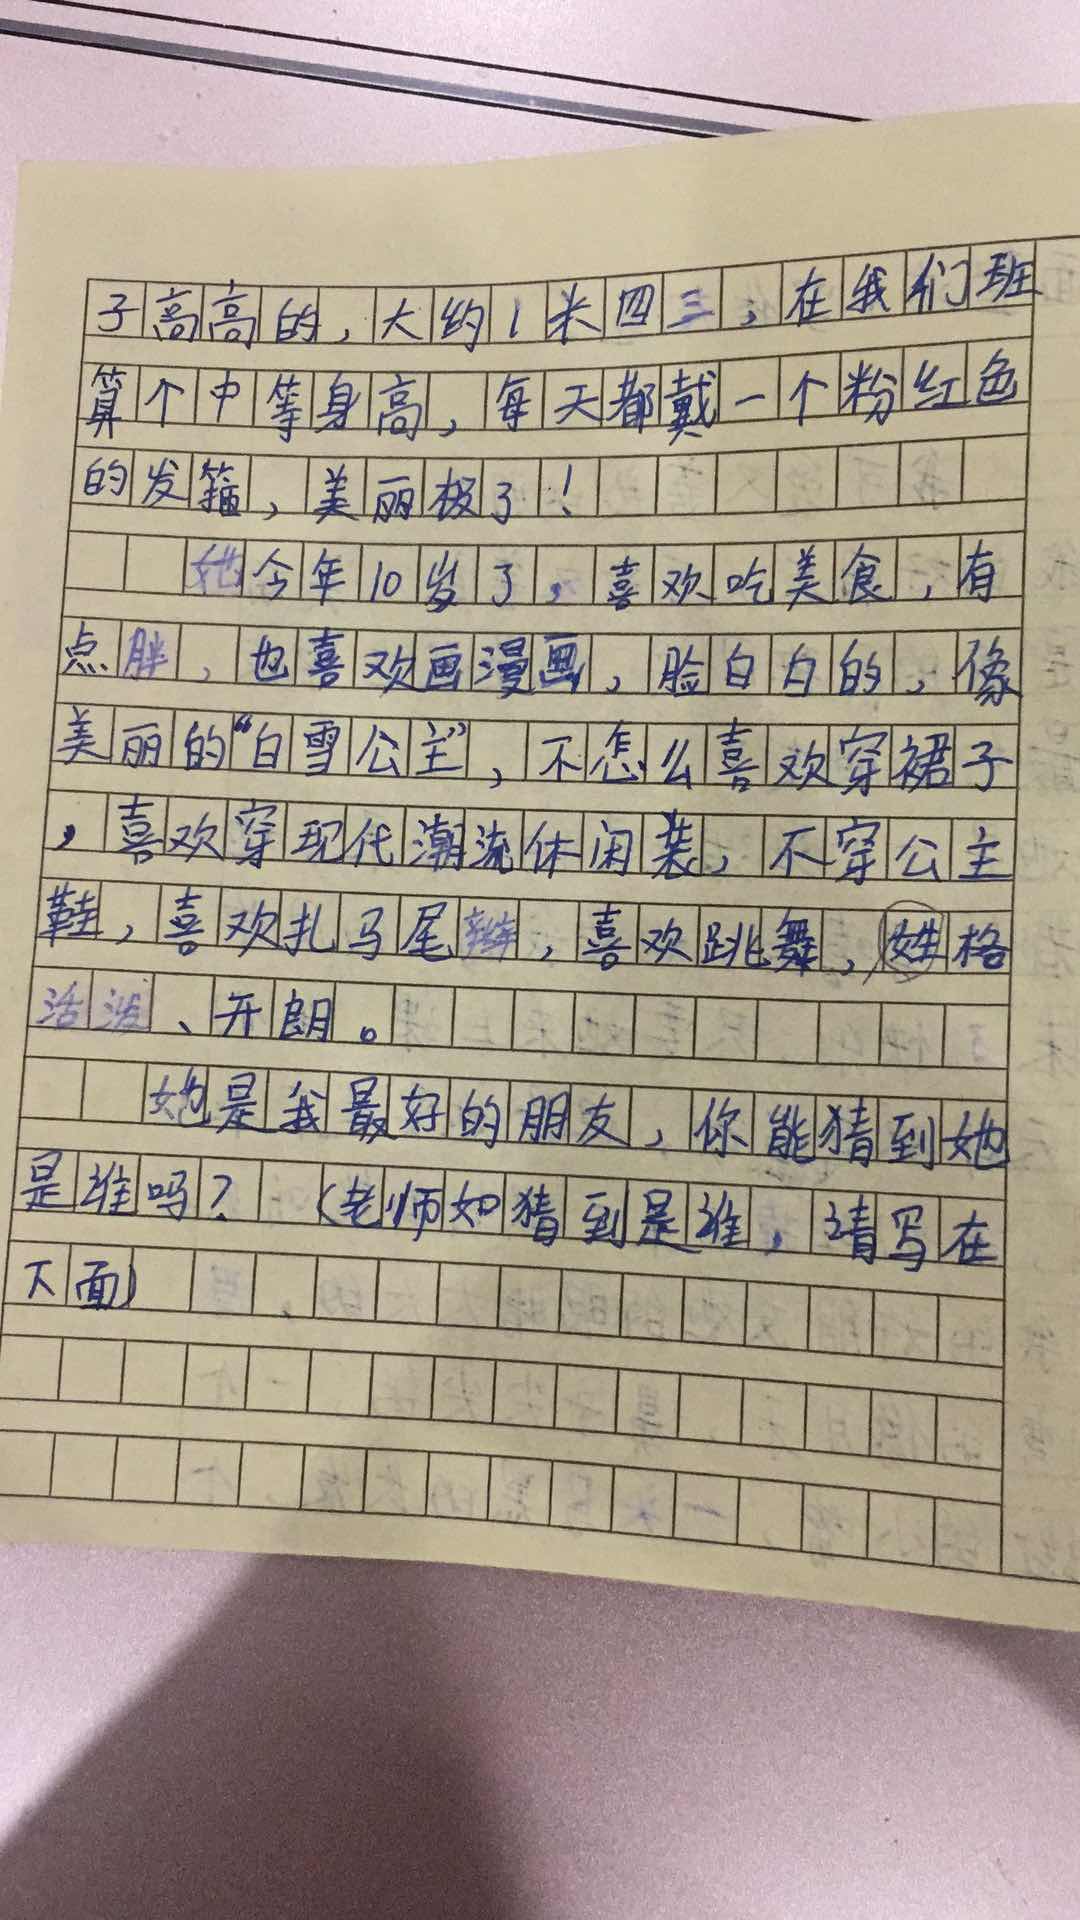 子高高的，大约1米四三，在我们班
算个中等身高，每天都戴一个粉红色
的发箍，美丽极了！
她今年10岁了，喜欢吃美食，有
点胖，也喜欢画漫画，脸白白的，像
美丽的“白雪公主”，不怎么喜欢穿裙子
，喜欢穿现代潮流休闲装，不穿公主
鞋，喜欢扎马尾辫，喜欢跳舞，姓格
活泼、开朗。
她是我最好的朋友，你能猜到她
是谁吗？（老师如猜到是谁，请写在
下面）